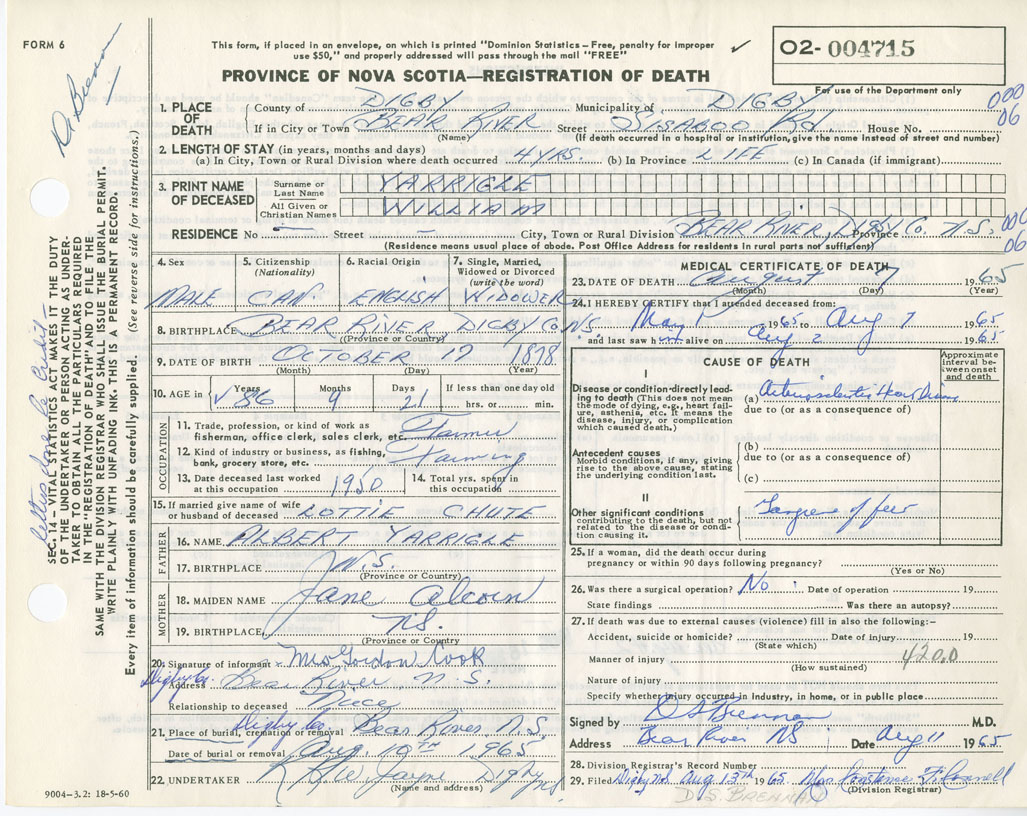 FORM 6
This form, if placed in an envelope, on which is printed "Dominion Statistics – Free, penalty for improper
use $50," and properly addressed will pass through the mail "FREE"
✓
O2- 004715
PROVINCE OF NOVA SCOTIA—REGISTRATION OF DEATH
For use of the Department only
Dr Brennan
000
06
1. PLACE OF DEATH
County of DIGBY Municipality of DIGBY
If in City or Town BEAR RIVER Street SISABOO RD. House No.
(Name) (If death occurred in a hospital or institution, give the name instead of street and number)
2. LENGTH OF STAY (in years, months and days)
(a) In City, Town or Rural Division where death occurred 4 YRS. (b) In Province LIFE (c) In Canada (if immigrant)
3. PRINT NAME OF DECEASED
Surname or Last Name YARRIGLE
All Given or Christian Names WILLIAM
RESIDENCE No – Street – City, Town or Rural Division BEAR RIVER, DIGBY CO. Province N.S.
006
06
(Residence means usual place of abode. Post Office Address for residents in rural parts not sufficient)
4. Sex
MALE
5. Citizenship
(Nationality)
CAN.
6. Racial Origin
ENGLISH
7. Single, Married,
Widowed or Divorced
(write the word)
WIDOWER
8. BIRTHPLACE BEAR RIVER DIGBY CO. N.S.
(Province or Country)
9. DATE OF BIRTH OCTOBER 17 1878
(Month) (Day) (Year)
10. AGE in
Years
✓ 86
Months
9
Days
21
If less than one day old
hrs. or min.
OCCUPATION
11. Trade, profession, or kind of work as
fisherman, office clerk, sales clerk, etc. Farmer
12. Kind of industry or business, as fishing,
bank, grocery store, etc. Farming
13. Date deceased last worked
at this occupation 1950
14. Total yrs. spent in
this occupation
15. If married give name of wife
or husband of deceased LOTTIE CHUTE
FATHER
16. NAME ALBERT YARRIGLE
17. BIRTHPLACE N.S.
(Province or Country)
MOTHER
18. MAIDEN NAME Jane
19. BIRTHPLACE N.S.
(Province or Country)
20. Signature of informant Mrs Gordon Cook
Digby Co.
Address Bear River, N.S.
Relationship to deceased Niece
21. Place of burial, cremation or removal Digby Co Bear River N.S.
Date of burial or removal Aug. 10TH 1965
22. UNDERTAKER Jayne Digby NS
(Name and address)
9004–3.2: 18-5-60
MEDICAL CERTIFICATE OF DEATH
23. DATE OF DEATH August 7 1965
(Month) (Day) (Year)
24. I HEREBY CERTIFY that I attended deceased from:
May 1 1965 to Aug 7 1965
and last saw him alive on Aug 2 1965
CAUSE OF DEATH
Approximate
interval be-
tween onset
and death
I
Disease or condition directly lead-
ing to death (This does not mean
the mode of dying, e.g., heart failure,
asthenia, etc. It means the
disease, injury, or complication
which caused death.)
(a) Arteriosclerotic Heart Disease
due to (or as a consequence of)
Antecedent causes
Morbid conditions, if any, giving
rise to the above cause, stating
the underlying condition last.
(b)
due to (or as a consequence of)
(c)
II
Other significant conditions
contributing to the death, but not
related to the disease or condi-
tion causing it.
Gangrene of feet
25. If a woman, did the death occur during
pregnancy or within 90 days following pregnancy?
(Yes or No)
26. Was there a surgical operation? No Date of operation 19
State findings Was there an autopsy?
27. If death was due to external causes (violence) fill in also the following:-
Accident, suicide or homicide? Date of injury 19
(State which)
Manner of injury 420.0
(How sustained)
Nature of injury
Specify whether injury occurred in Industry, in home, or in public place
Signed by D S Brennan M.D.
Address Bear River NS Date Aug 11 1965
28. Division Registrar's Record Number
29. Filed Digby NS. Aug 13th 1965 Mrs Constance
(Division Registrar)
D. S. BRENNAN
SEC. 14 – VITAL STATISTICS ACT MAKES IT THE DUTY
OF THE UNDERTAKER OR PERSON ACTING AS UNDER-
TAKER TO OBTAIN ALL THE PARTICULARS REQUIRED
IN THE "REGISTRATION OF DEATH" AND TO FILE THE
SAME WITH THE DIVISION REGISTRAR WHO SHALL ISSUE THE BURIAL PERMIT.
WRITE PLAINLY WITH UNFADING INK. THIS IS A PERMANENT RECORD.
Every item of information should be carefully supplied. (See reverse side for instructions.)